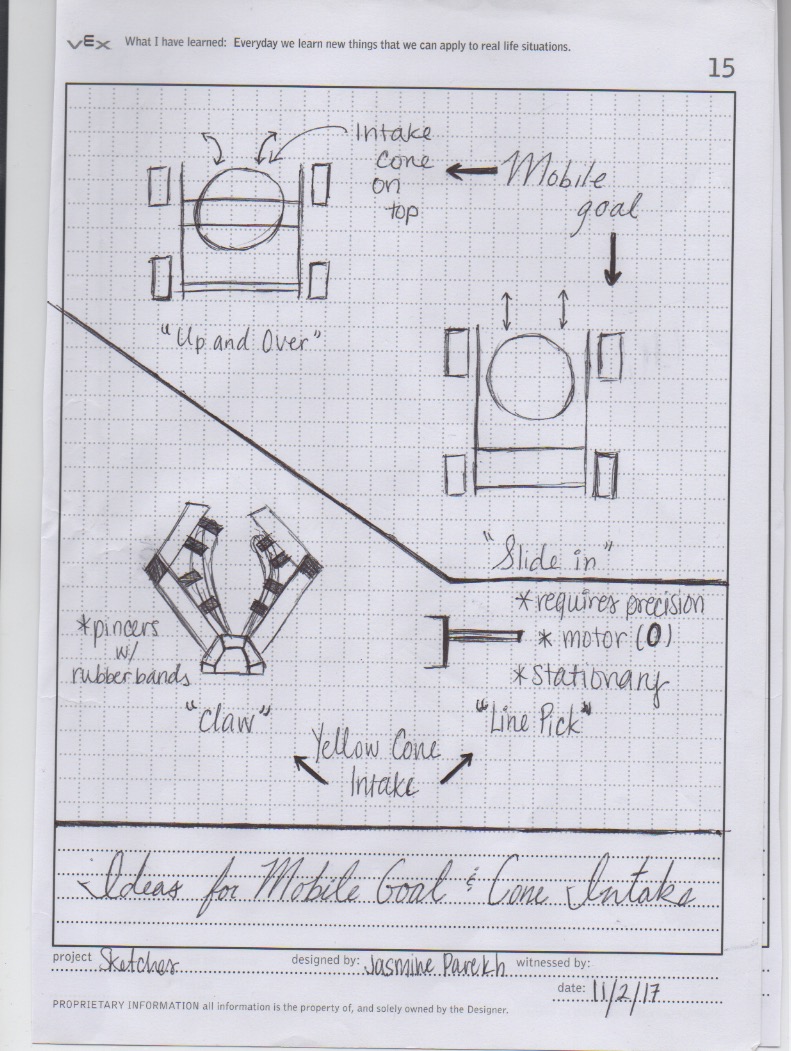 VEX What I have learned: Everyday we learn new things that we can apply to real life situations.
15
Intake
cone
on
top
Mobile
goal
"Up and Over"
"Slide in"
*requires precision
* motor (0)
*stationary
"Line Pick"
*pincers
w/
rubber bands
"Claw"
Yellow Cone
Intake
Ideas for Mobile Goal & Cone Intake
project Sketches designed by: Jasmine Parekh witnessed by:
date: 11/2/17
PROPRIETARY INFORMATION all information is the property of, and solely owned by the Designer.